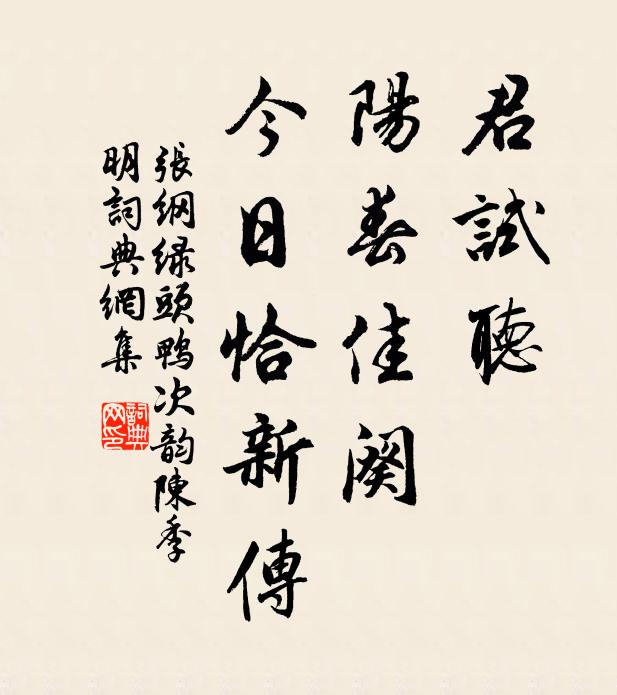 君試聽
陽春佳闋
今日恰新傳
張綱绿頭鴨次韵陳季
明詞典網集
詞典
网印